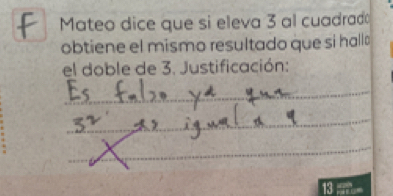 F Mateo dice que si eleva 3 al cuadrado
obtiene el mismo resultado que si halla
el doble de 3. Justificación:
Es falso ya que
3² es igual a 9
13